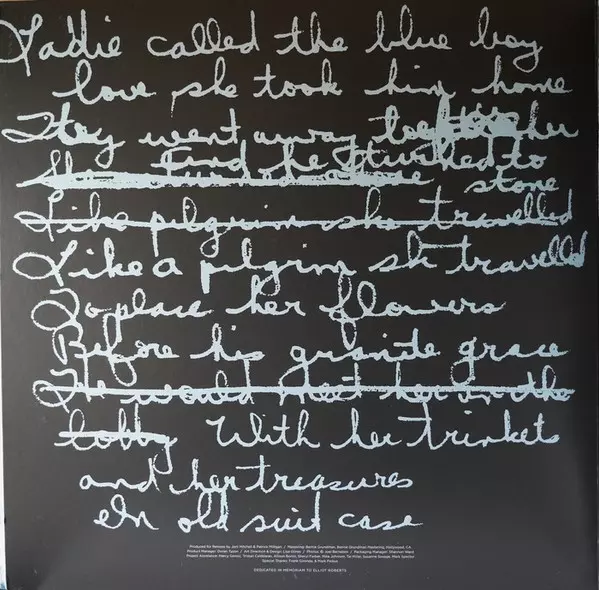 Ladie called the blue boy
love she took him home
They went away together
And he turned to
She stone
Like pilgrim she travelled
Like a pilgrim sh travelled
To place her flowers
Before his granite grace
He would meet her in the
lobby With her trinkets
and her treasures
In old suit case
Produced for Release by Joni Mitchell & Patrick Milligan / Mastering: Bernie Grundman, Bernie Grundman Mastering, Hollywood, CA
DEDICATED IN MEMORIAM TO ELLIOT ROBERTS